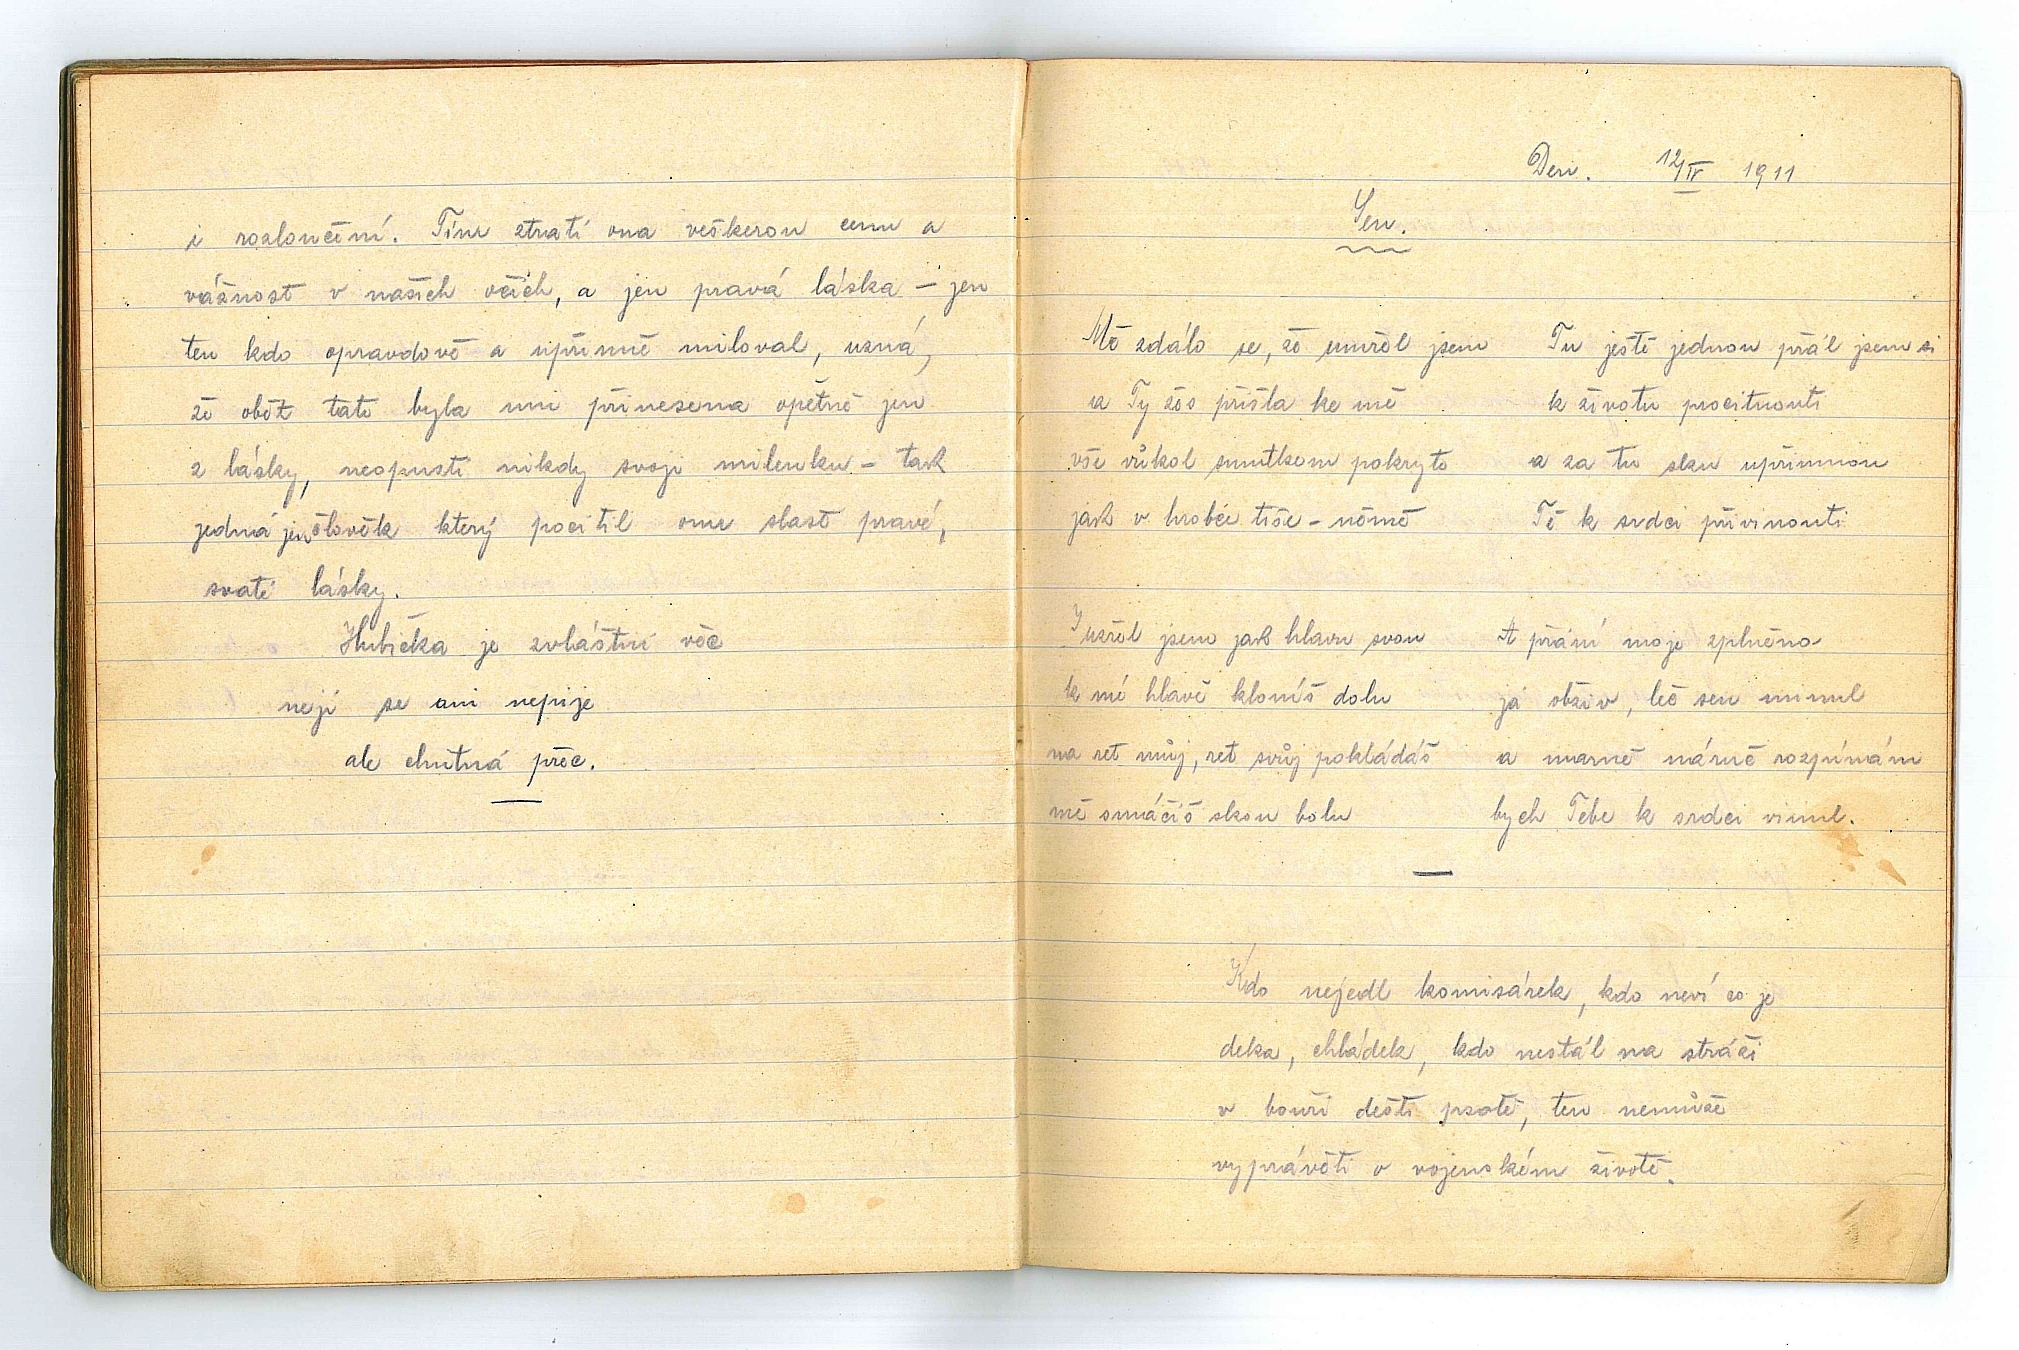 i rozloučění. Tím ztratí ona veškerou cenu a
vážnost v našich očích, a jen pravá láska – jen
ten kdo opravdově a upřímně miloval, uzná,
že oběť tato byla mu přinesena opětně jen
z lásky, neopustí nikdy svoji milenku – tak
jedná jen člověk který pocítil onu slast pravé,
svaté lásky.
Hubička je zvláštní věc
nejí se ani nepije
ale chutná přec.
Den. 12/IV 1911
Sen.
Mě zdálo se, že umřel jsem
a Ty žes přišla ke mě
vše vůkol smutkem pokryto
jak v hrobce tiše – němě
I uzřel jsem jak hlavu svou
k mé hlavě kloníš dolu
na ret můj, ret svůj pokládáš
mě smáčíš slzou bolu
Tu ještě jednou přál jsem si
k životu procitnouti
a za tu slzu upřímnou
Tě k srdci přivinouti
A přání moje zplněno
já obživ, leč sen minul
a marně náruč rozpínám
bych Tebe k srdci vinul.
Kdo nejedl komisárek, kdo neví co je
deka, chládek, kdo nestál na stráži
v bouři dešti psotě, ten nemůže
vyprávěti o vojenském životě.